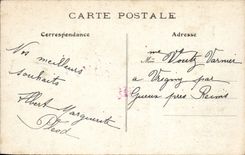 CARTE POSTALE
Correspondance
Adresse
Nos meilleurs
souhaits
Albert Marguerite
me
Varnier
à Vrigny par
Gueux près Reims